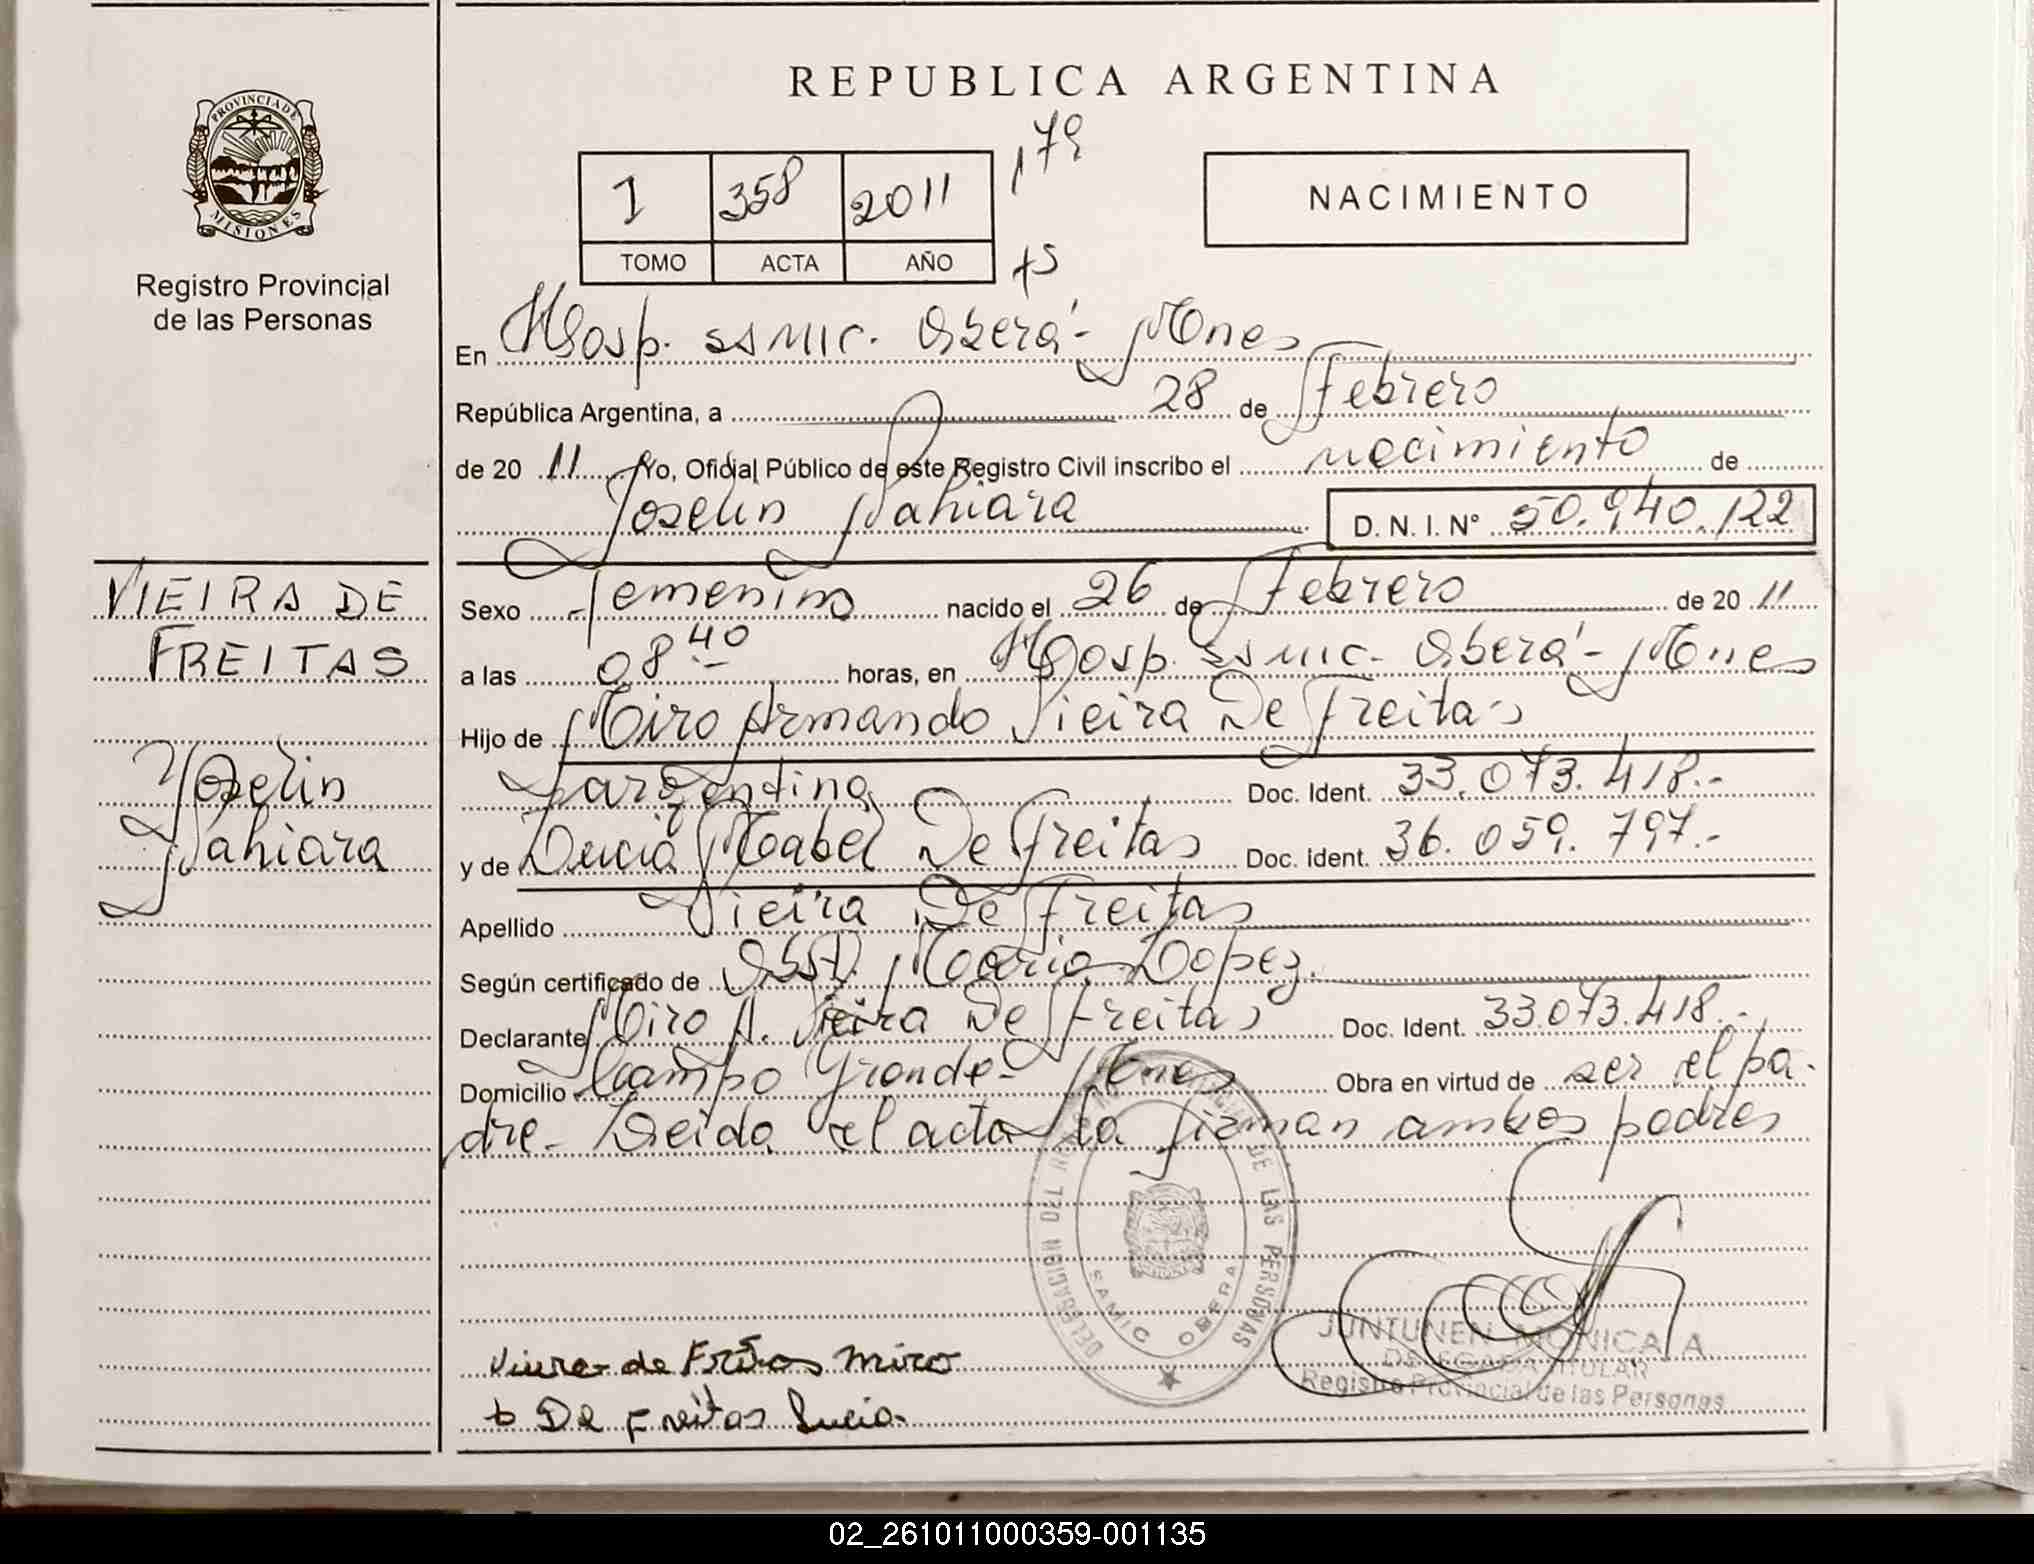 REPUBLICA ARGENTINA
PROVINCIA DE
MISIONES
Registro Provincial
de las Personas
179
1 358 2011
TOMO ACTA AÑO
NACIMIENTO
En Hosp. SSMIC. Oberá - Mnes
República Argentina, a 28 de Febrero
de 20 11 Yo, Oficial Público de este Registro Civil inscribo el nacimiento de
Yoselin Nahiara
D. N. I. N° 50.940.122
VIEIRA DE
FREITAS
Yoselin
Nahiara
Sexo femenino nacido el 26 de Febrero de 20 11
a las 08 40 horas, en Hosp. SSMIC. Oberá - Mnes
Hijo de Miro Armando Vieira De Freitas
argentina Doc. Ident. 33.073.418.-
y de Lucia Mabel De Freitas Doc. Ident. 36.059.797.-
Apellido Vieira De Freitas
Según certificado de Obst. Maria Lopez.
Declarante Miro A. Vieira De Freitas Doc. Ident. 33.073.418.-
Domicilio Campo Grande - Mnes Obra en virtud de ser el pa-
dre. Leida el acta la firman ambos padres
DELEGACION REGISTRO PROVINCIAL DE LAS PERSONAS
SAMIC OBERA
Vieira de Freitas Miro
De Freitas Lucia.
JUNTUNEN MONICA A
DELEGADA TITULAR
Registro Provincial de las Personas
02_261011000359-001135